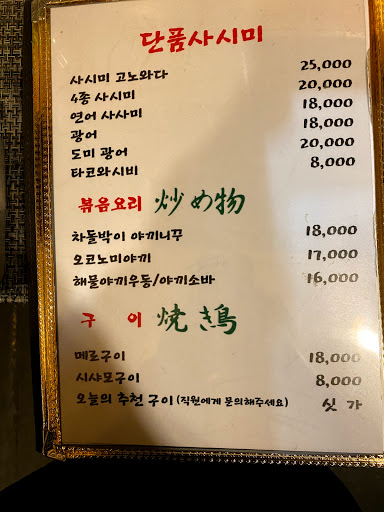 단품사시미
사시미 고노와다 25,000
4종 사시미 20,000
연어 사사미 18,000
광어 18,000
도미 광어 20,000
타코와시비 8,000
볶음요리 炒め物
차돌박이 야끼니꾸 18,000
오코노미야끼 17,000
해물야끼우동/야끼소바 16,000
구 이 焼き鳥
메로구이 18,000
시샤모구이 8,000
오늘의 추천 구이 (직원에게 문의해주세요) 싯 가